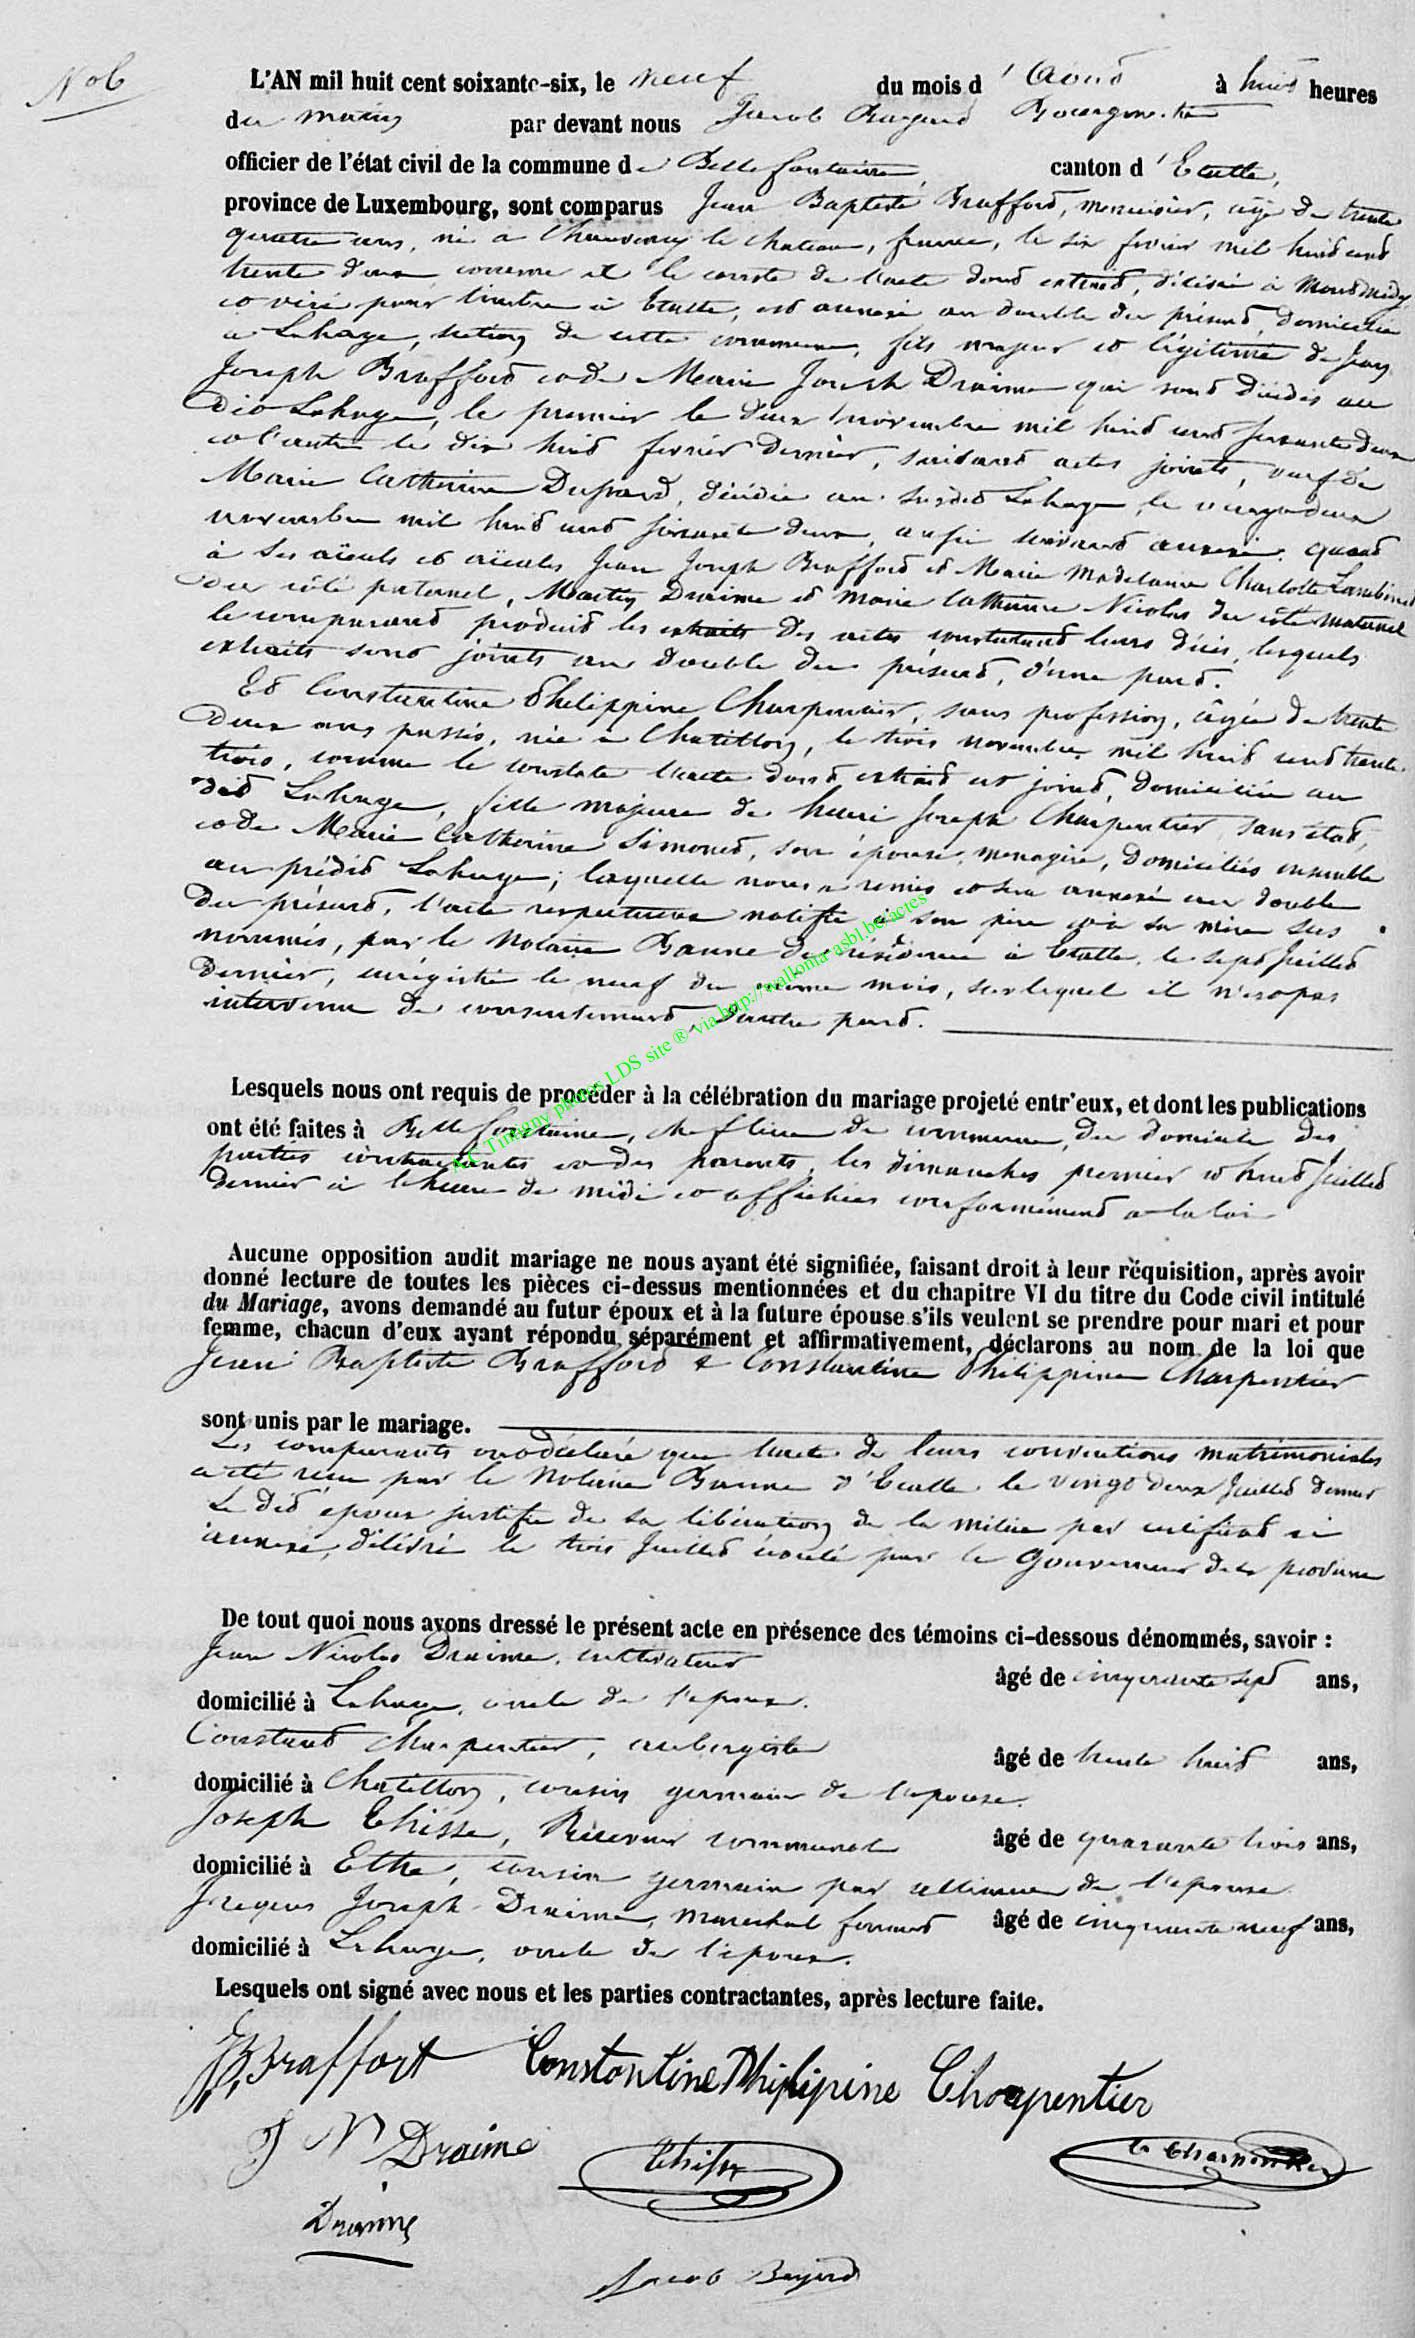 N° 6
L'AN mil huit cent soixante-six, le neuf du mois d'Août à huit heures
du matin par devant nous Jacob Bayard Bourgmestre
officier de l'état civil de la commune de Bellefontaine, canton d'Etalle,
province de Luxembourg, sont comparus Jean Baptiste Braffort, menuisier, âgé de trente
quatre ans, né à Chauvency le chateau, france, le six fevrier mil huit cent
trente deux, comme il le conste de l'acte dont extrait, délivré à Montmédy
et visé pour timbre à Etalle, est annexé au double du présent, domicilié
à Lahage, section de cette commune, fils majeur et légitime de Jean
Joseph Braffort et de Marie Joseph Draime qui sont décédés au
dit Lahage, le premier le deux novembre mil huit cent soixante deux
et l'autre le dix huit fevrier dernier, suivant actes joints, veuf de
Marie Catherine Dupard, décédée au susdit Lahage le vingt deux
novembre mil huit cent soixante deux, aussi suivant annexe. quant
à ses aïeuls et aïeules Jean Joseph Braffort et Marie Madelaine Charlotte Lambinet
du côté paternel, Martin Draime et Marie Catherine Nicolas du côté maternel
le comparant produit les extraits des actes constatant leurs décès, lesquels
extraits sont joints au double du présent, d'une part.
Et Constantine Philippine Charpentier, sans profession, âgée de trente
deux ans passés, née à Chatillon, le trois novembre mil huit cent trente
trois, comme le constate l'acte dont extrait est joint, domiciliée au
dit Lahage, fille majeure de henri Joseph Charpentier sans état,
et de Marie Catherine Simonet, son épouse, menagère, domiciliés ensemble
au prédit Lahage; laquelle nous a remis et sera annexé au double
du présent, l'acte respectueux notifié à son père et à sa mère sus
nommés, par le Notaire Banne de résidence à Etalle, le sept Juillet
dernier, enrégistré le neuf du même mois, sur lequel il n'est pas
intervenu de consentement, d'autre part.
AC Tintigny photos LDS site ® via http://wallonia-asbl.be/actes
Lesquels nous ont requis de procéder à la célébration du mariage projeté entr'eux, et dont les publications
ont été faites à Bellefontaine, chef lieu de commune, du domicile des
parties contractantes et des parents, les dimanches premier et huit Juillet
dernier à l'heure de midi et affichées conformément à la loi
Aucune opposition audit mariage ne nous ayant été signifiée, faisant droit à leur réquisition, après avoir
donné lecture de toutes les pièces ci-dessus mentionnées et du chapitre VI du titre du Code civil intitulé
du Mariage, avons demandé au futur époux et à la future épouse s'ils veulent se prendre pour mari et pour
femme, chacun d'eux ayant répondu séparément et affirmativement, déclarons au nom de la loi que
Jean Baptiste Braffort & Constantine Philippine Charpentier
sont unis par le mariage.
Les comparants ont déclaré que l'acte de leurs conventions matrimoniales
a été reçu par le Notaire Banne d'Etalle le vingt deux Juillet dernier
Le dit époux justifie de sa libération de la milice par certificat ci
annexé, délivré le trois Juillet écoulé par le Gouverneur de la province
De tout quoi nous avons dressé le présent acte en présence des témoins ci-dessous dénommés, savoir :
Jean Nicolas Draime, cultivateur âgé de cinquante sept ans,
domicilié à Lahage, oncle de l'époux.
Constant Charpentier, aubergiste âgé de trente huit ans,
domicilié à Chatillon, cousin germain de l'épouse.
Joseph Thisse, Receveur communal âgé de quarante trois ans,
domicilié à Ethe, cousin germain par alliance de l'épouse.
Jacques Joseph Draime, marechal ferrant âgé de cinquante neuf ans,
domicilié à Lahage, oncle de l'époux.
Lesquels ont signé avec nous et les parties contractantes, après lecture faite.
JBBraffort Constantine Philipine Charpentier
J N Draime Thisse C Charpentier
Draime
Jacob Bayard